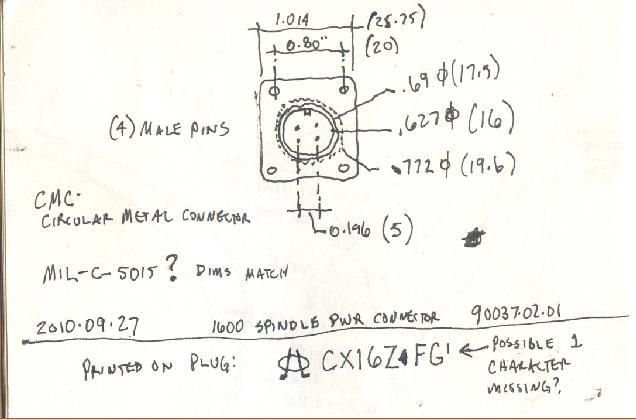 1.014 (25.75)
0.80" (20)
.69 Φ (17.5)
.627 Φ (16)
.772 Φ (19.6)
(4) MALE PINS
0.196 (5)
CMC-
CIRCULAR METAL CONNECTOR
MIL-C-5015? DIMS MATCH
2010.09.27 1600 SPINDLE PWR CONNECTOR 90037.02.01
PRINTED ON PLUG: CX16Z FG' ← POSSIBLE 1
CHARACTER
MISSING?